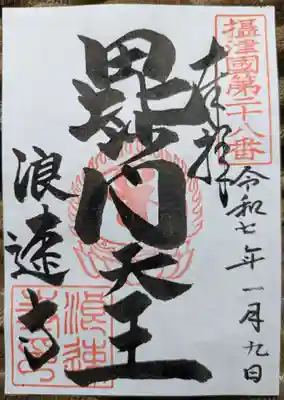 攝津國第二十八番
奉拝
令和七年一月九日
毘沙門天王
浪速寺
浪速寺印